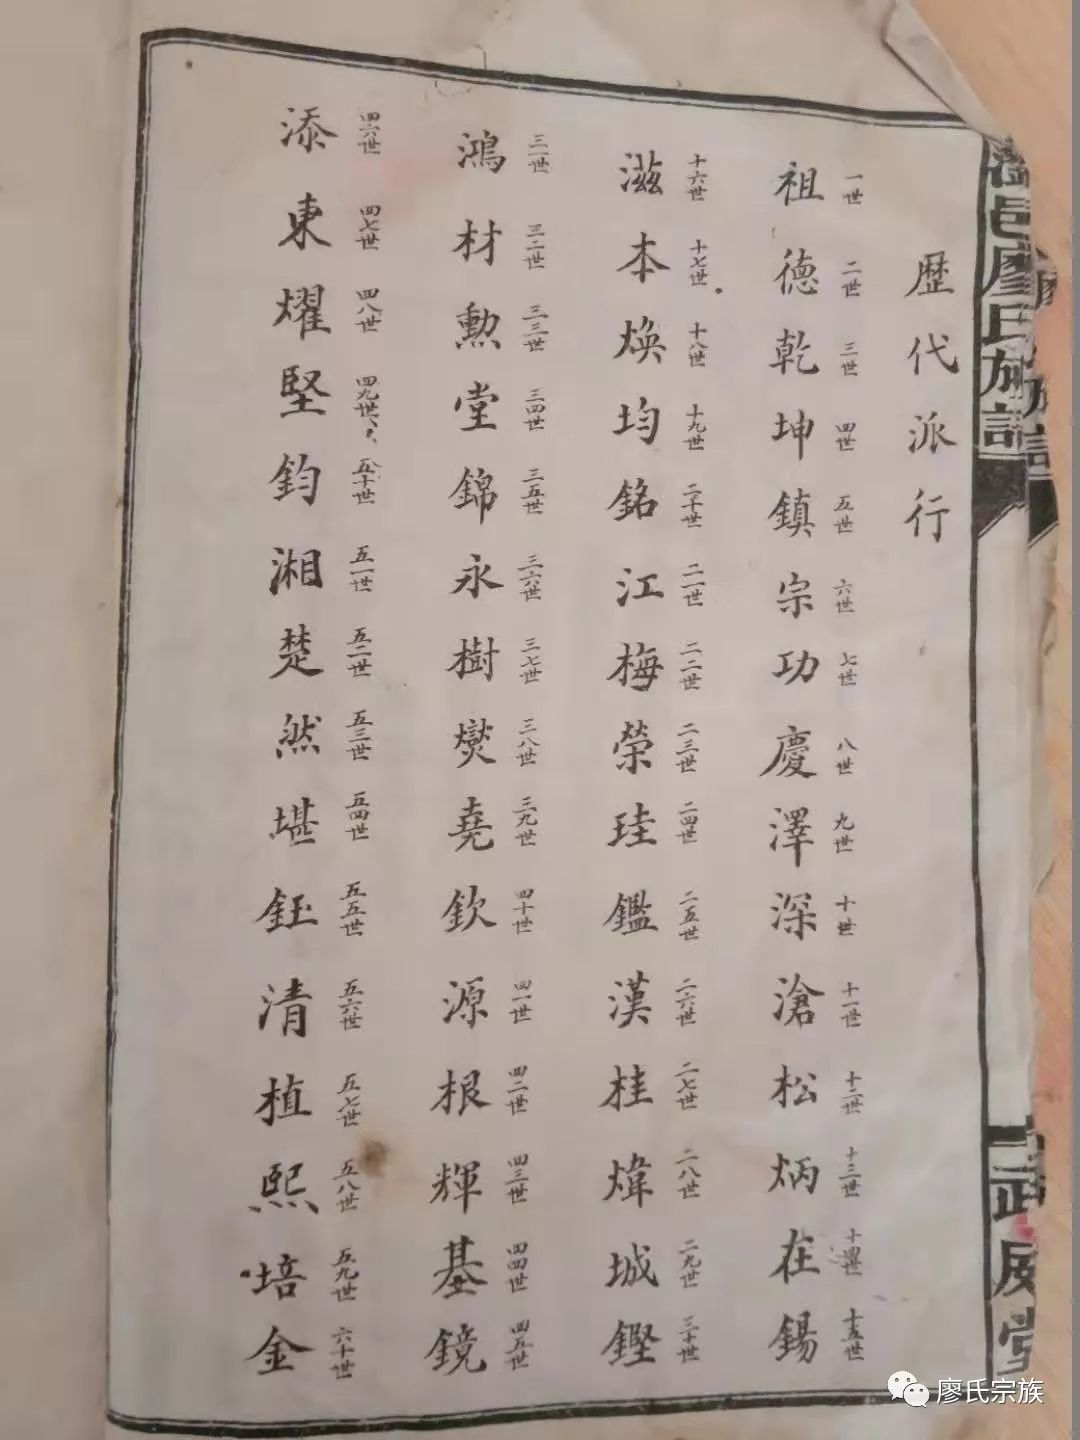 歷代派行
祖 一世
德 二世
乾 三世
坤 四世
鎮 五世
宗 六世
功 七世
慶 八世
澤 九世
深 十世
滄 十一世
松 十二世
炳 十三世
在 十四世
錫 十五世
滋 十六世
本 十七世
煥 十八世
均 十九世
銘 二十世
江 二一世
梅 二二世
榮 二三世
珪 二四世
鑑 二五世
漢 二六世
桂 二七世
煒 二八世
城 二九世
鏗 三十世
鴻 三一世
材 三二世
勲 三三世
堂 三四世
錦 三五世
永 三六世
樹 三七世
爕 三八世
堯 三九世
欽 四十世
源 四一世
根 四二世
輝 四三世
基 四四世
鏡 四五世
添 四六世
東 四七世
燿 四八世
堅 四九世
鈞 五十世
湘 五一世
楚 五二世
然 五三世
堪 五四世
鈺 五五世
清 五六世
植 五七世
熙 五八世
培 五九世
金 六十世
邑廖氏族譜
武威堂
廖氏宗族